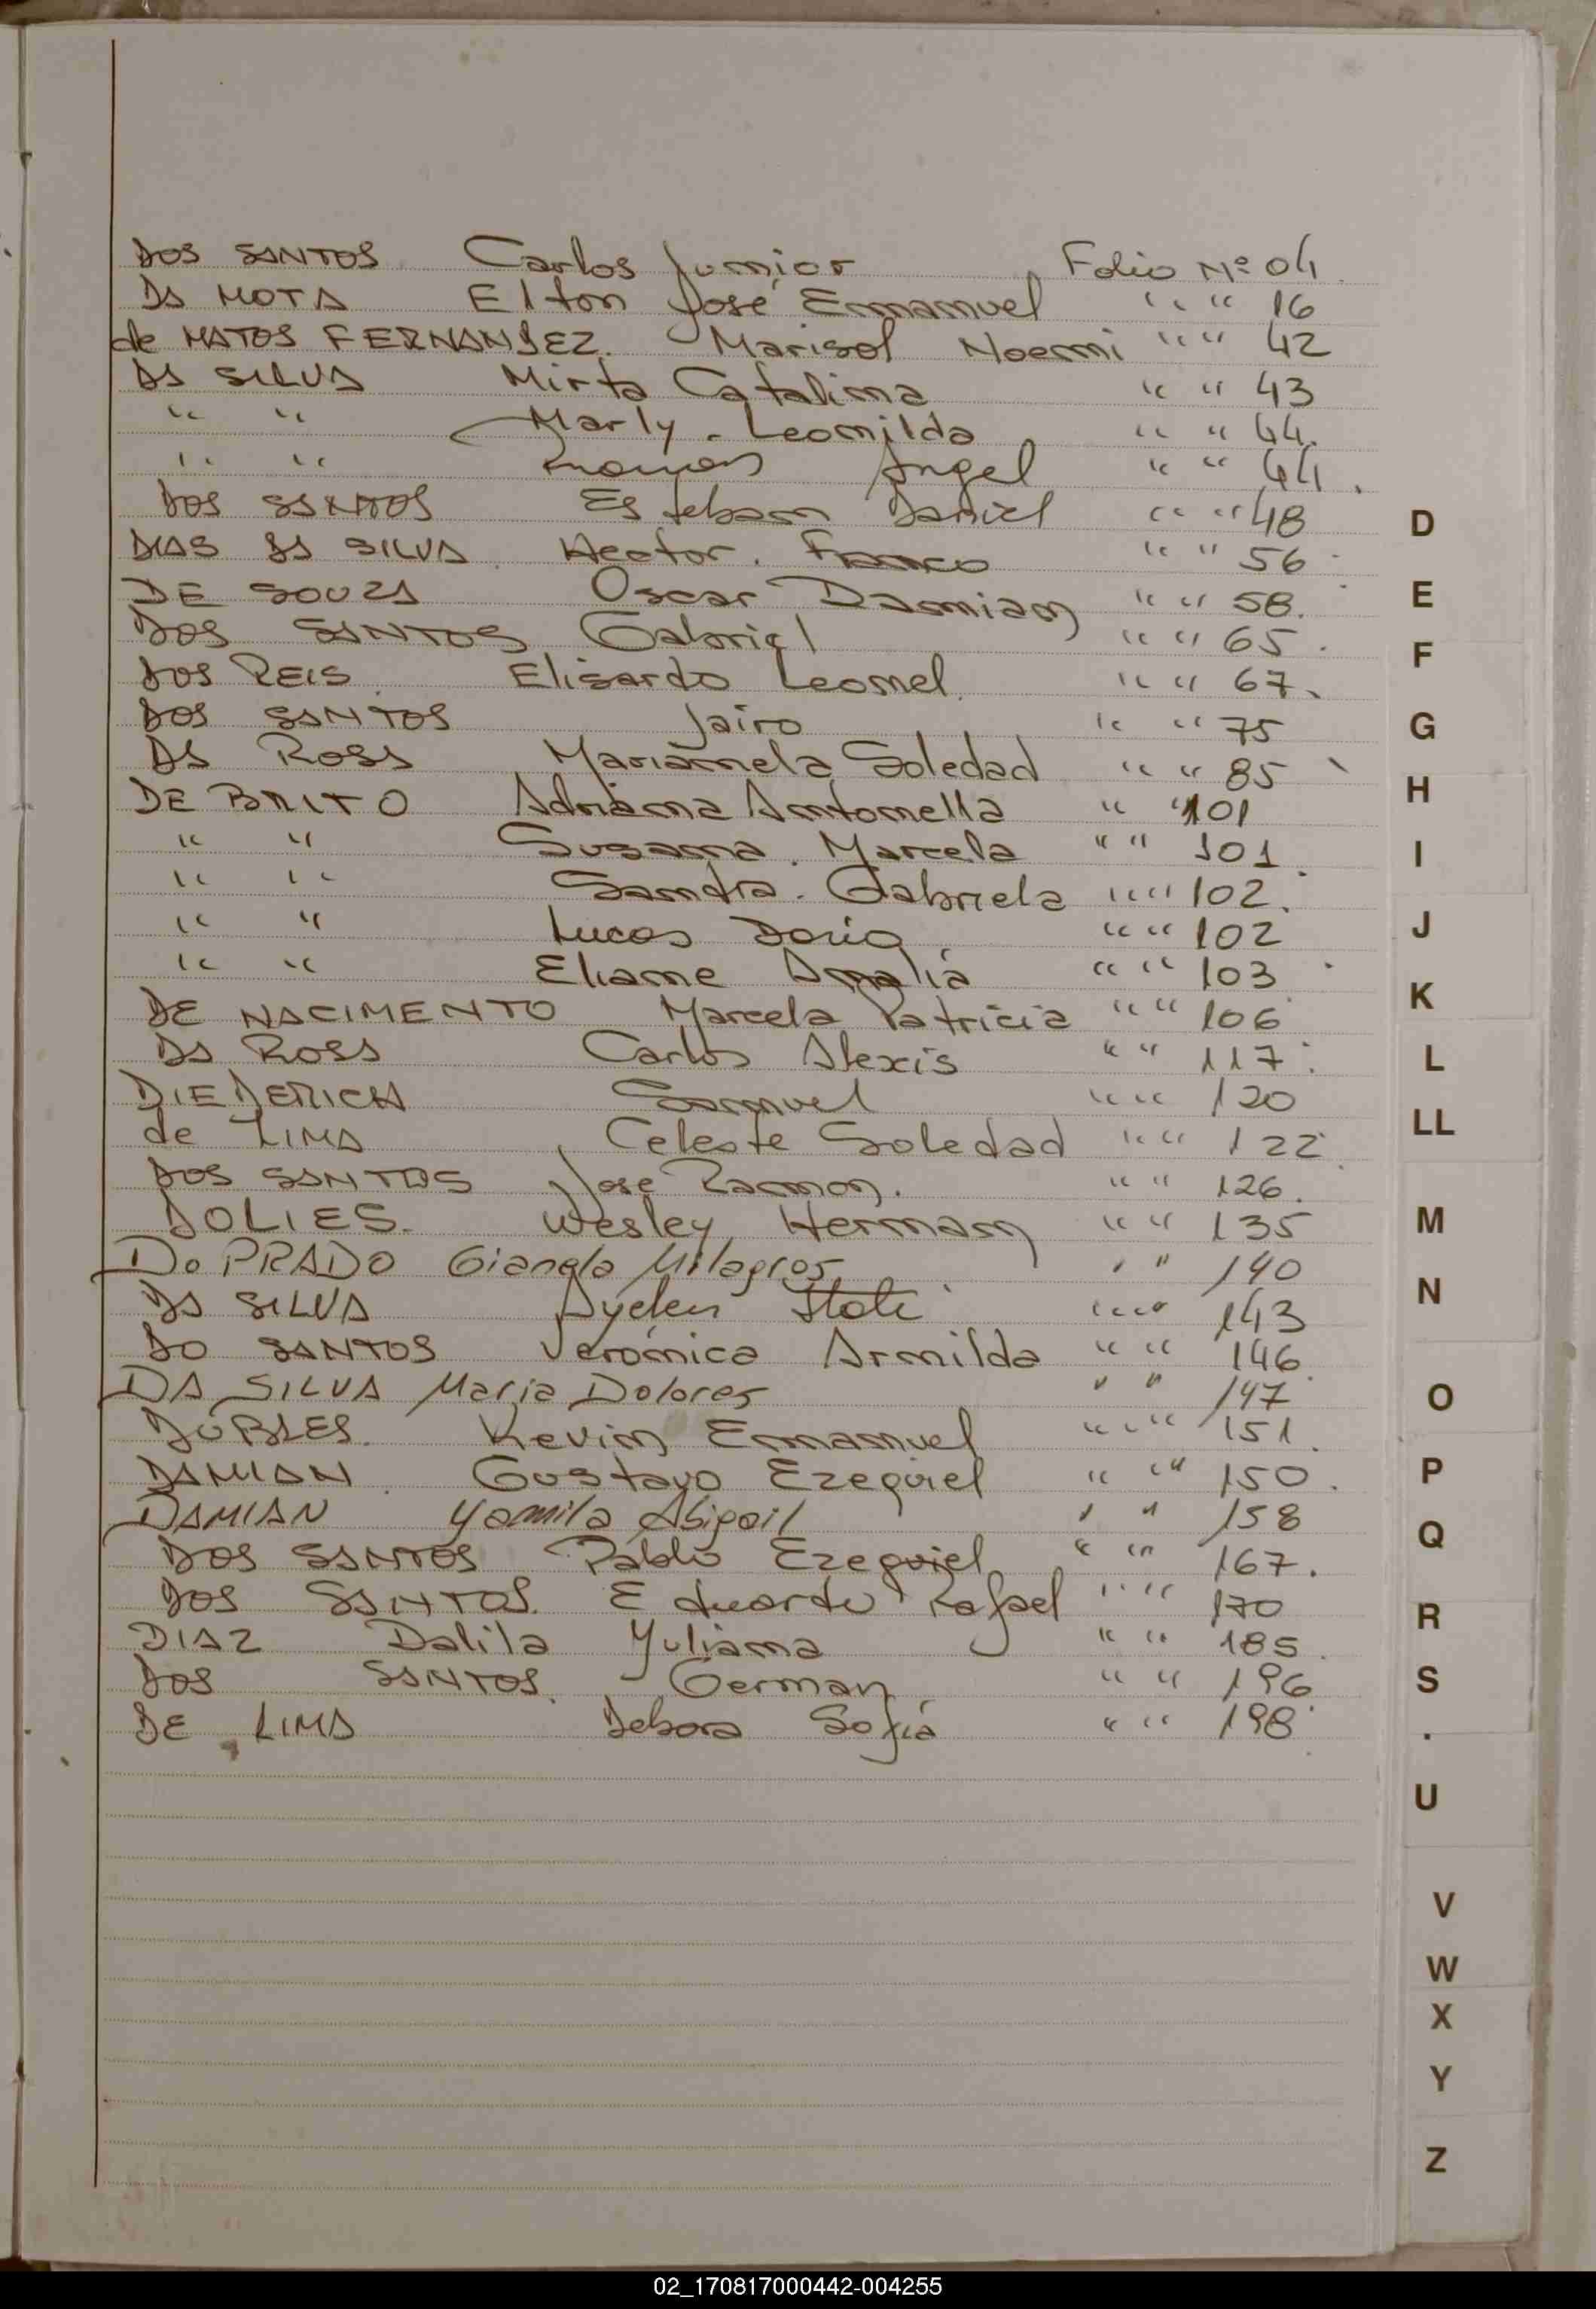 DOS SANTOS Carlos Junior Folio Nº 04
DA MOTA Elton José Emmanuel " " 16
de MATOS FERNANDEZ. Marisol Noemi " " 42
DA SILVA Mirta Catalina " " 43
" " Marly. Leonilda " " 44.
" " Ramon Angel " " 44.
DOS SANTOS Esteban Daniel " " 48
DIAS DA SILVA. Hector. Franco " " 56
DE SOUZA Oscar Damian " " 58.
DOS SANTOS Gabriel " " 65.
DOS REIS. Elisardo Leonel. " " 67.
DOS SANTOS Jairo " " 75
DA ROSA Marianela Soledad " " 85
DE BRITO Adriana Antonella " " 101
" " Susana. Marcela " " 101
" " Sandra. Gabriela " " 102.
" " Lucas Dario " " 102
" " Eliane Amalia " " 103
DE NACIMENTO Marcela Patricia " " 106
DA ROSA Carlos Alexis " " 117.
DIEDERICH Samuel " " 120
de LIMA Celeste Soledad " " 122
DOS SANTOS José Ramon. " " 126.
DOLIES. Wesley Herman " " 135
Do PRADO Giangla Milagros " " 140
DA SILVA Ayelen " " 143
DO SANTOS Verónica Armilda " " 146
DA SILVA Maria Dolores " " 147
Kevin Emmanuel " " 151.
DAMIAN. Gustavo Ezequiel " " 150.
DAMIAN Yamila Abigail " " 158
DOS SANTOS Pablo Ezequiel " " 167.
DOS SANTOS. Eduardo Rafael " " 170
DIAZ Dalila Yuliana " " 185.
DOS SANTOS. German " " 196
DE LIMA Debora Sofia " " 198
D
E
F
G
H
I
J
K
L
LL
M
N
O
P
Q
R
S
U
V
W
X
Y
Z
02_170817000442-004255